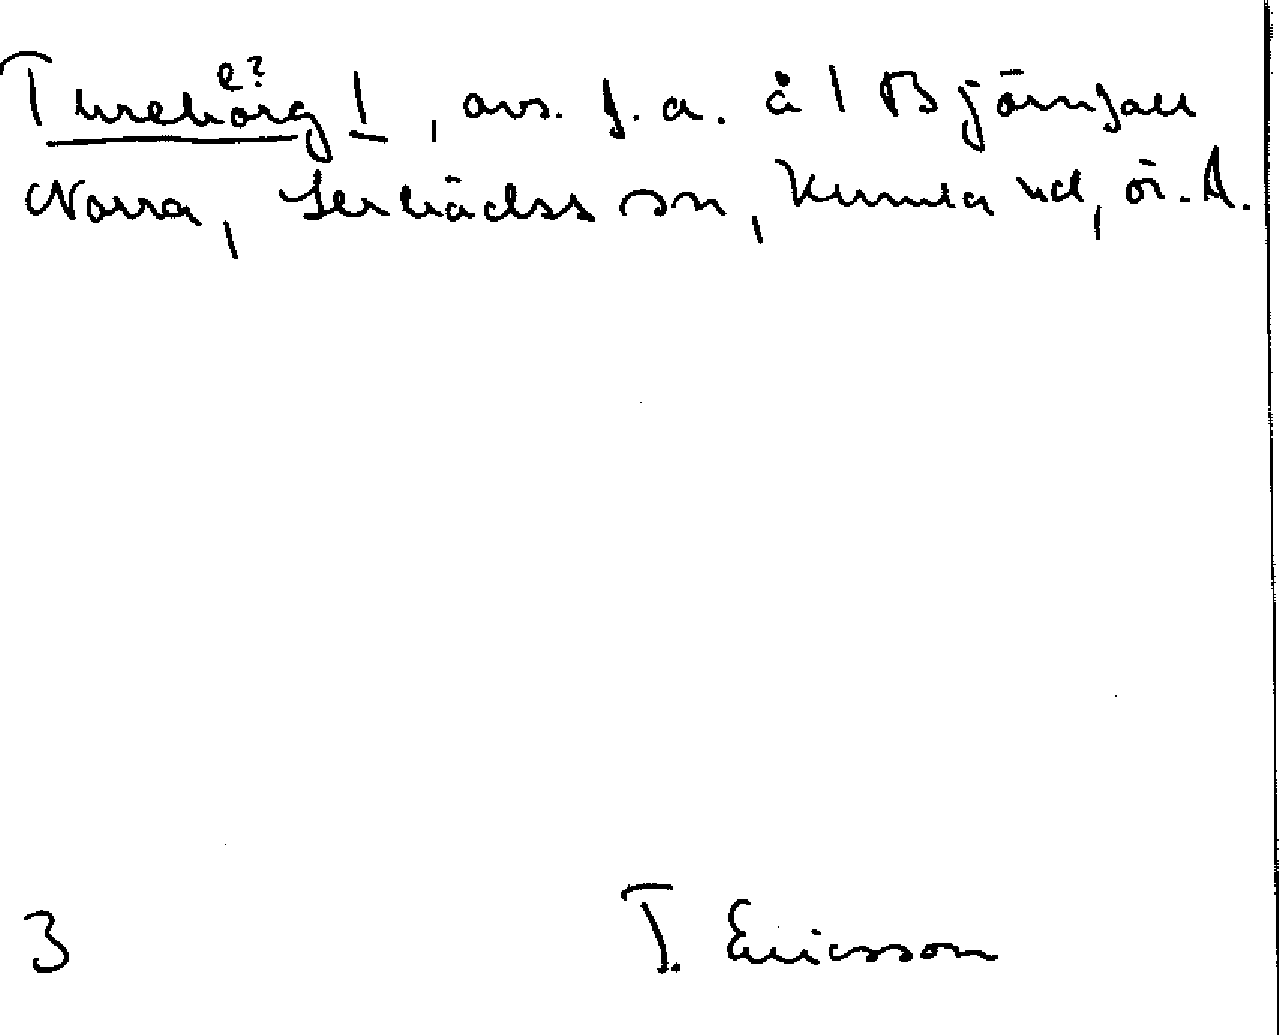 e?
Tureborg 1, avs. f.a. å 1 Björnfall
Norra, Lerbäcks sn, Kumla hd, ör. l.
3 T. Ericsson